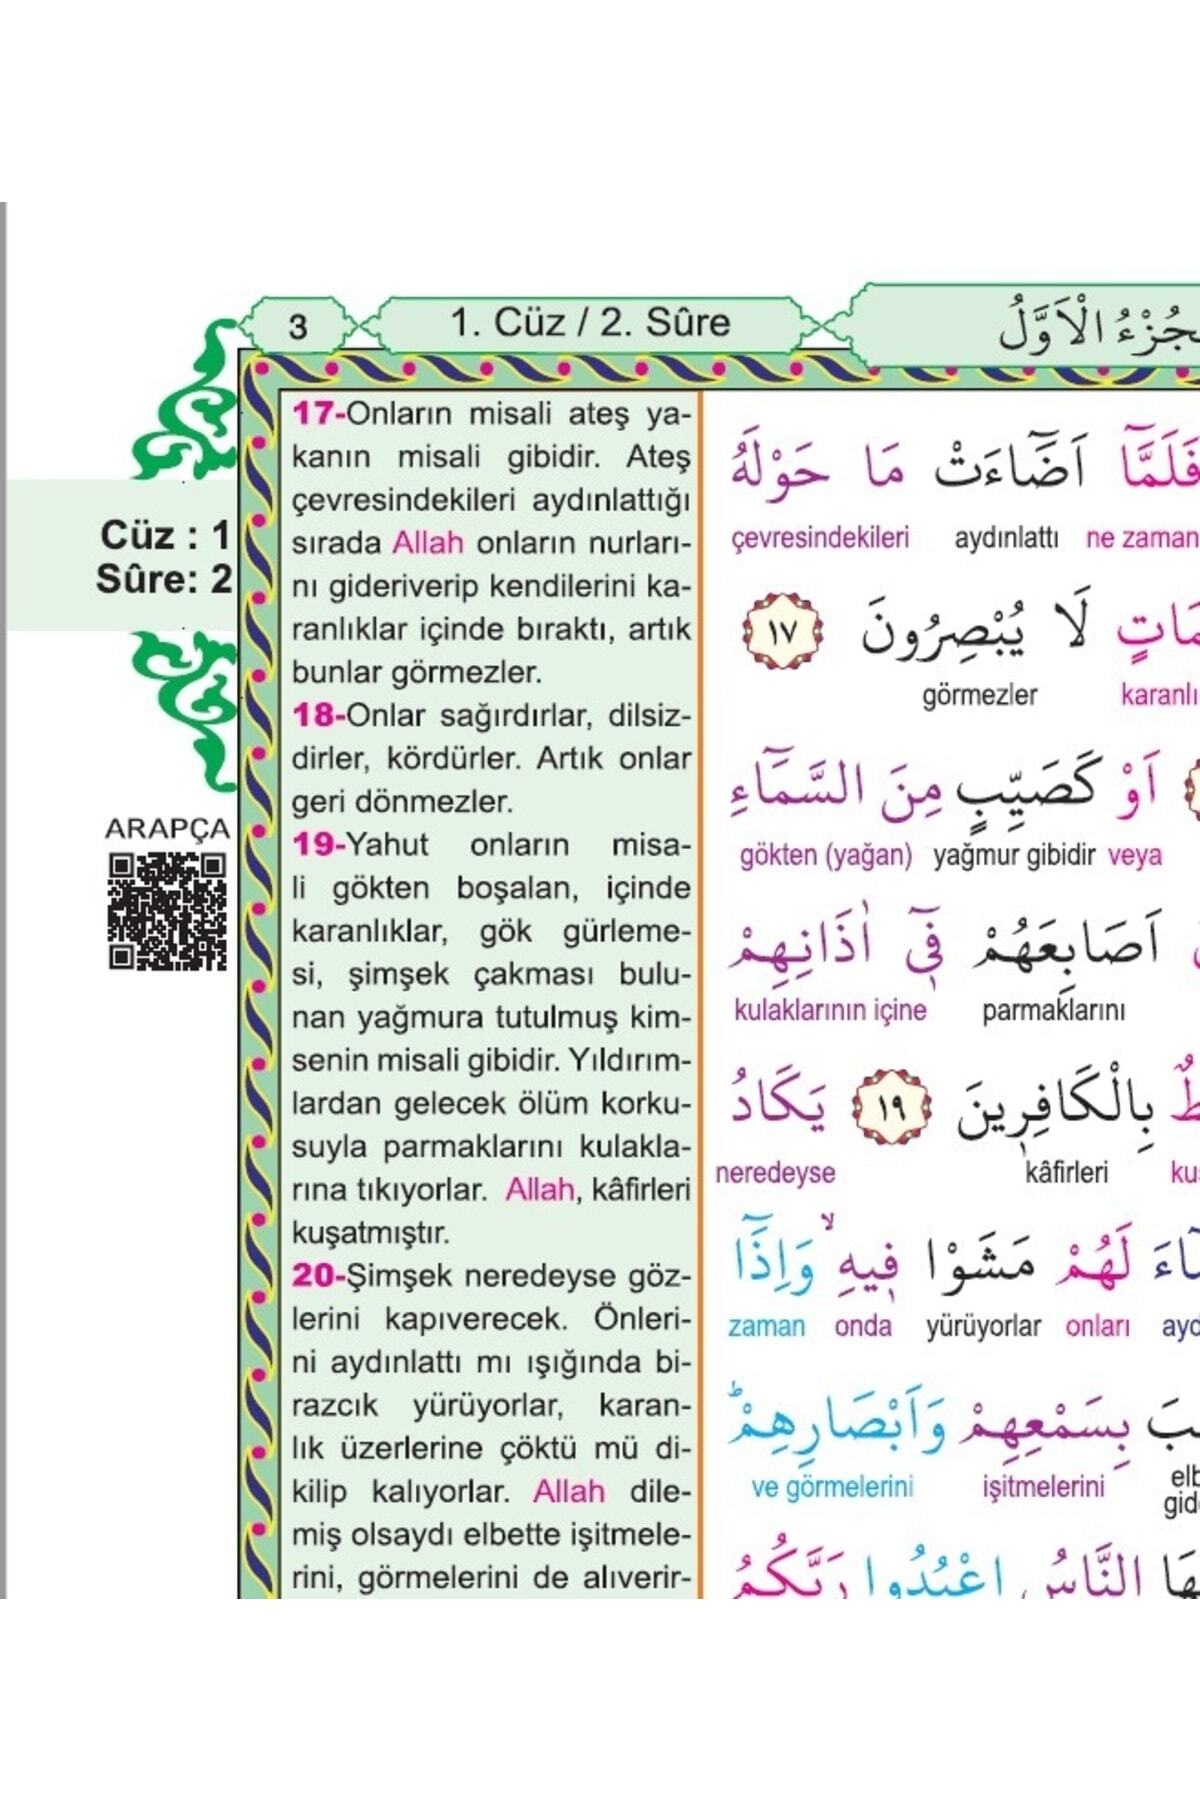 3
1. Cüz / 2. Sûre
الْاَوَّلُ
Cüz : 1
Sûre: 2
ARAPÇA
17-Onların misali ateş ya-
kanın misali gibidir. Ateş
çevresindekileri aydınlattığı
sırada Allah onların nurları-
nı gideriverip kendilerini ka-
ranlıklar içinde bıraktı, artık
bunlar görmezler.
18-Onlar sağırdırlar, dilsiz-
dirler, kördürler. Artık onlar
geri dönmezler.
19-Yahut onların misa-
li gökten boşalan, içinde
karanlıklar, gök gürleme-
si, şimşek çakması bulu-
nan yağmura tutulmuş kim-
senin misali gibidir. Yıldırım-
lardan gelecek ölüm korku-
suyla parmaklarını kulakla-
rına tıkıyorlar. Allah, kâfirleri
kuşatmıştır.
20-Şimşek neredeyse göz-
lerini kapıverecek. Önleri-
ni aydınlattı mı ışığında bi-
razcık yürüyorlar, karan-
lık üzerlerine çöktü mü di-
kilip kalıyorlar. Allah dile-
miş olsaydı elbette işitmele-
rini, görmelerini de alıverir-
فَلَمَّٓا اَضَٓاءَتْ مَا حَوْلَهُ
çevresindekileri aydınlattı ne zaman
لَا يُبْصِرُونَ ﴿١٧﴾
görmezler
اَوْ كَصَيِّبٍ مِنَ السَّمَٓاءِ
gökten (yağan) yağmur gibidir veya
اَصَابِعَهُمْ فٖٓى اٰذَانِهِمْ
kulaklarının içine parmaklarını
بِالْكَافِرٖينَ ﴿١٩﴾ يَكَادُ
neredeyse kâfirleri
لَهُمْ مَشَوْا فٖيهِۙ وَاِذَٓا
zaman onda yürüyorlar onları
بِسَمْعِهِمْ وَاَبْصَارِهِمْؕ
ve görmelerini işitmelerini
النَّاسُ اعْبُدُوا رَبَّكُمُ